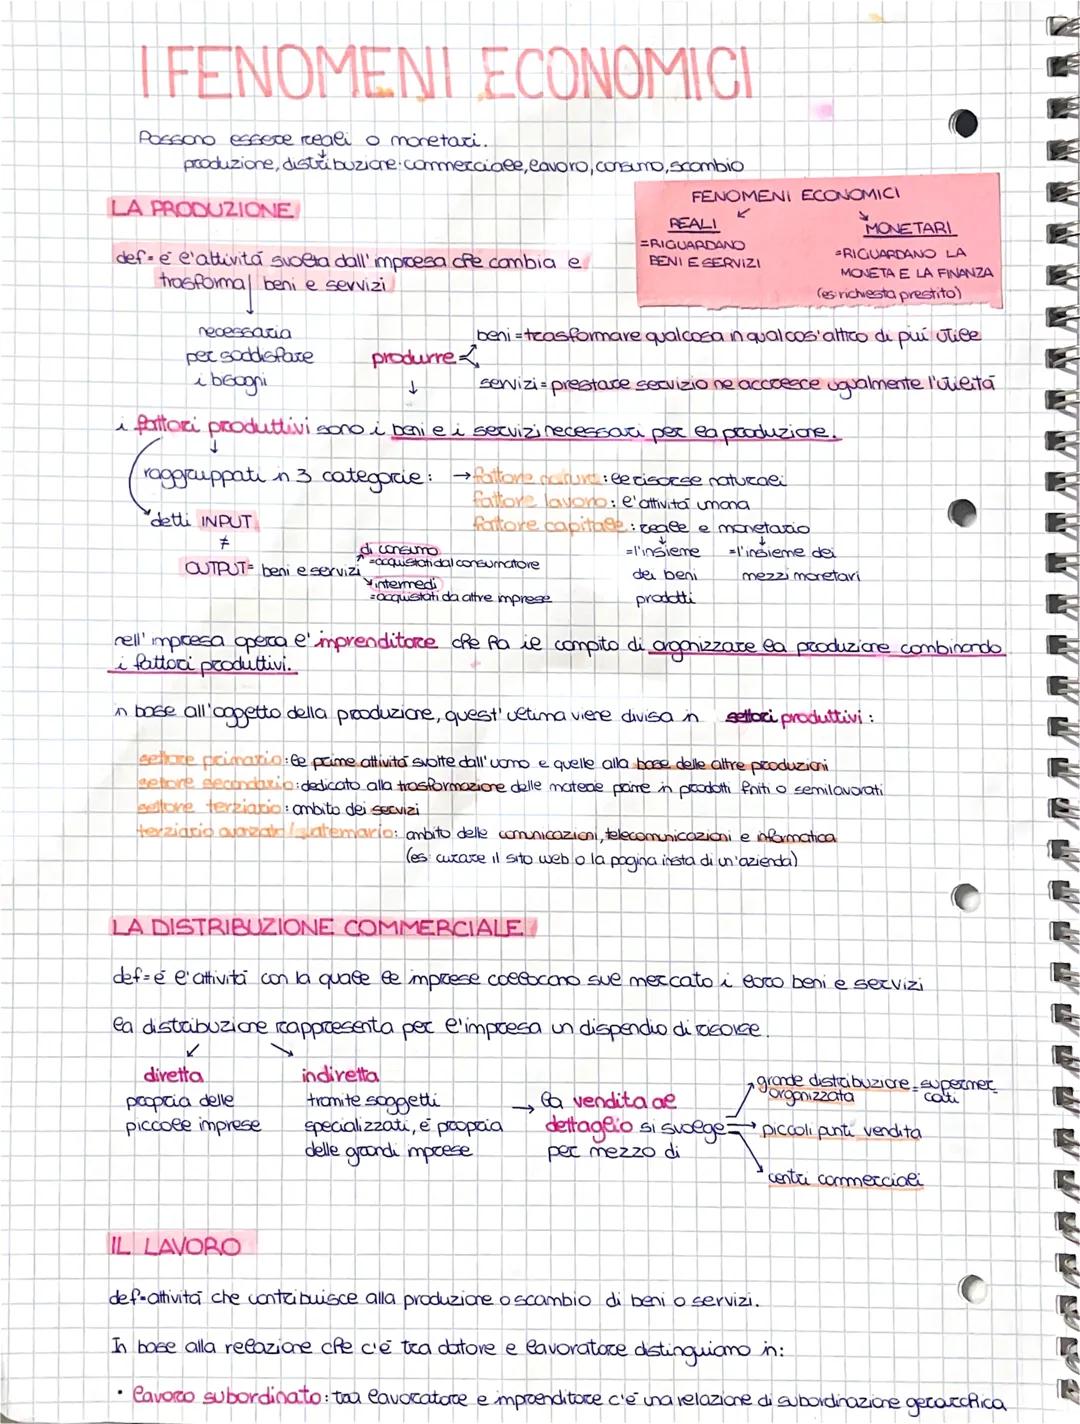 I FENOMENI ECONOMICI
Possono essere reali o monetari.
produzione, distribuzione commerciale, lavoro, consumo, scambio
FENOMENI ECONOMICI
REALI
=RIGUARDANO
BENI E SERVIZI
MONETARI
=RIGUARDANO LA
MONETA E LA FINANZA
(es: richiesta prestito)
LA PRODUZIONE
def= é l'attivitá svolta dall'impresa che cambia e
trasforma beni e servizi
necessaria
per soddisfare
i bisogni
produrre
beni = trasformare qualcosa in qualcos'altro di piú utile
servizi = prestare servizio ne accresce ugualmente l'utilitá
i fattori produttivi sono i beni e i servizi necessari per la produzione.
raggruppati in 3 categorie: → fattore natura: le risorse naturali
fattore lavoro: l'attivitá umana
fattore capitale: reale e monetario
=l'insieme
dei beni
prodotti
=l'insieme dei
mezzi monetari
detti INPUT
≠
OUTPUT= beni e servizi
di consumo
=acquistati dal consumatore
intermedi
=acquistati da altre imprese
nell'impresa opera l'imprenditore che ha il compito di organizzare la produzione combinando
i fattori produttivi.
in base all'oggetto della produzione, quest'ultima viene divisa in settori produttivi:
settore primario: le prime attivitá svolte dall'uomo e quelle alla base delle altre produzioni
settore secondario: dedicato alla trasformazione delle materie prime in prodotti finiti o semilavorati
settore terziario: ambito dei servizi
terziario avanzato/quaternario: ambito delle comunicazioni, telecomunicazioni e informatica
(es: curare il sito web o la pagina insta di un'azienda)
LA DISTRIBUZIONE COMMERCIALE
def= é l'attivitá con la quale le imprese collocano sul mercato i loro beni e servizi
la distribuzione rappresenta per l'impresa un dispendio di risorse.
diretta
propria delle
piccole imprese
indiretta
tramite soggetti
specializzati, é propria
delle grandi imprese
→ la vendita al
dettaglio si svolge
per mezzo di
grande distribuzione = supermer
organizzata cati
piccoli punti vendita
centri commerciali
IL LAVORO
def= attivitá che contribuisce alla produzione o scambio di beni o servizi.
In base alla relazione che c'é tra datore e lavoratore distinguiamo in:
• lavoro subordinato: tra lavoratore e imprenditore c'é una relazione di subordinazione gerarchica